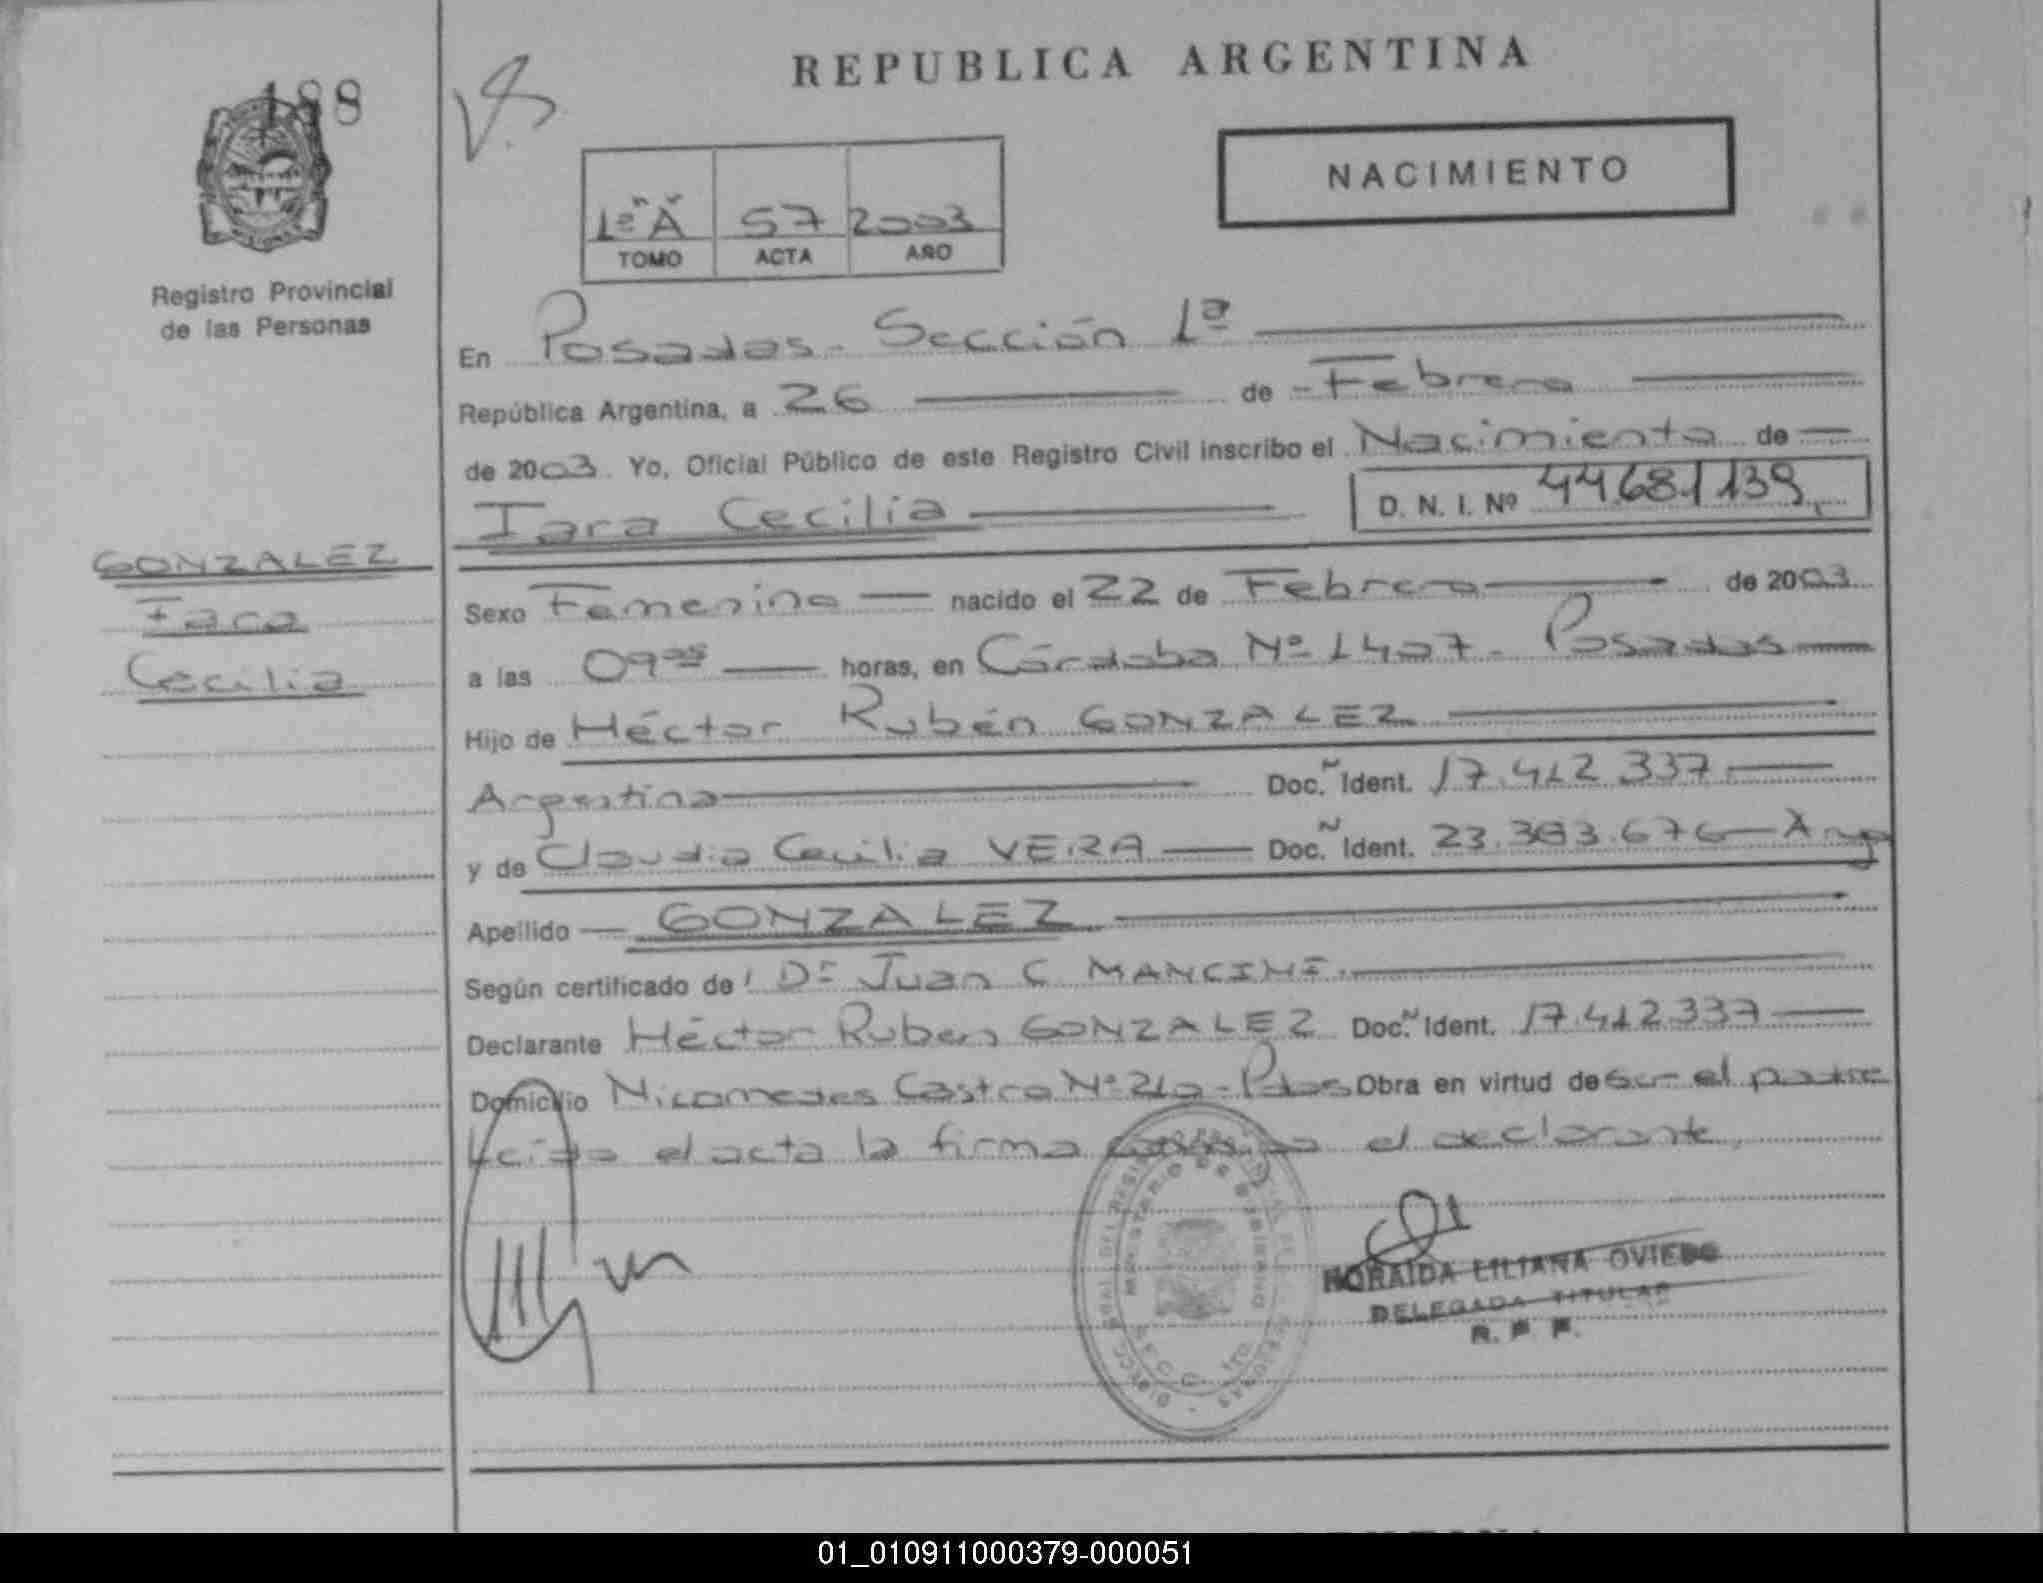 188
REPUBLICA ARGENTINA
NACIMIENTO
1º "A" 57 2003
TOMO ACTA AÑO
Registro Provincial
de las Personas
En Posadas - Sección 1ª
República Argentina, a 26 de Febrero
de 2003. Yo, Oficial Público de este Registro Civil inscribo el Nacimiento de
Iara Cecilia D. N. I. Nº 44681139
GONZALEZ
Iara
Cecilia
Sexo Femenino nacido el 22 de Febrero de 2003
a las 09 horas, en Córdoba Nº 1407 - Posadas
Hijo de Héctor Rubén GONZALEZ
Argentino Doc. Ident. 17.412.337
y de Claudia Cecilia VERA Doc. Ident. 23.383.676 Arg
Apellido GONZALEZ
Según certificado de Dr Juan C MANCINI
Declarante Héctor Ruben GONZALEZ Doc. Ident. 17.412.337
Domicilio Nicomedes Castro Nº 210 - Pdas Obra en virtud de ser el padre
Leida el acta la firma conmigo el declarante.
MINISTERIO DE GOBIERNO
NORAIDA LILIANA OVIEDO
DELEGADA TITULAR
R. P. P.
01_010911000379-000051